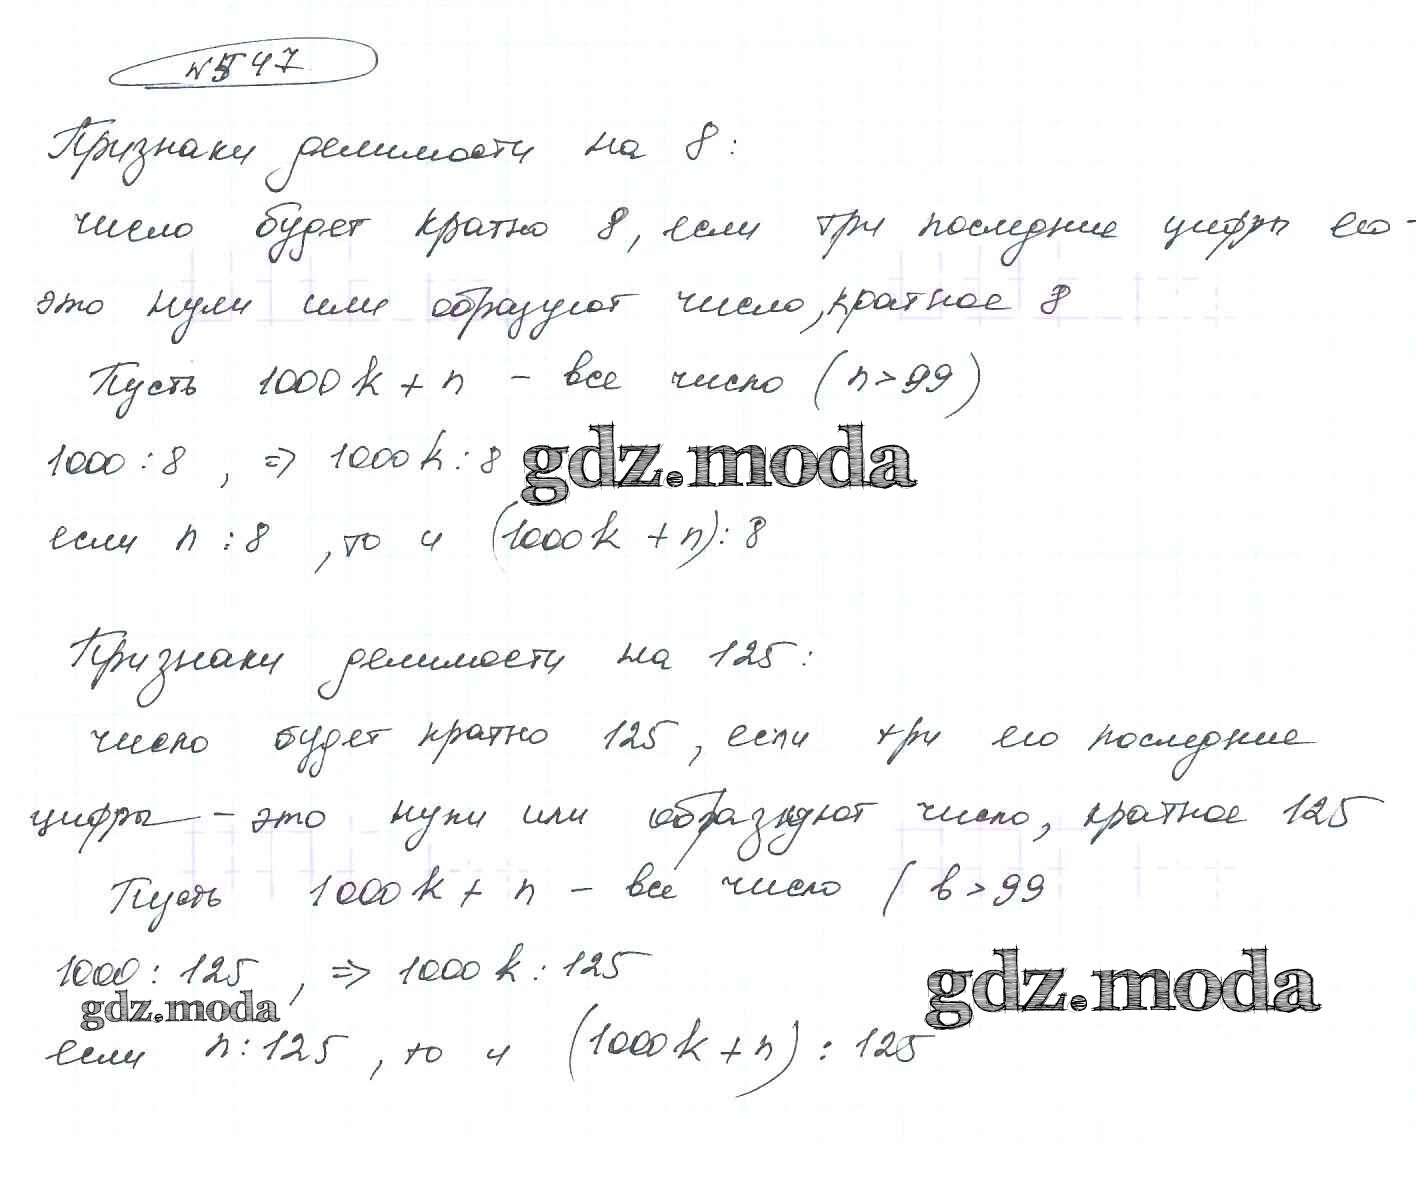 №547
Признаки делимости на 8:
число будет кратно 8, если три последние цифры его-
это нули или образуют число, кратное 8
Пусть 1000k + n - все число (n > 99)
1000 : 8 , => 1000k : 8
gdz.moda
если n : 8 , то и (1000k + n) : 8
Признаки делимости на 125:
число будет кратно 125, если три его последние
цифры - это нули или образуют число, кратное 125
Пусть 1000k + n - все число ( b > 99
1000 : 125 , => 1000k : 125
gdz.moda
gdz.moda
если n : 125 , то и (1000k + n) : 125